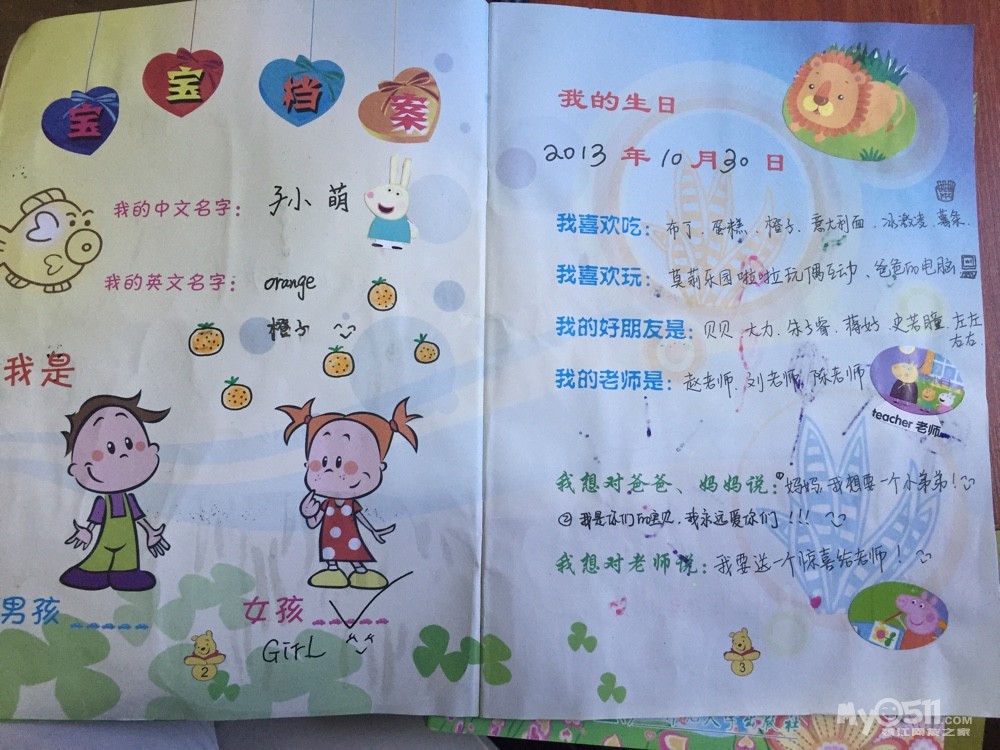 宝宝档案
我的中文名字：孙小萌
我的英文名字：orange
橙子
我是
男孩
女孩
GirL
2
我的生日
2013年10月30日
我喜欢吃：布丁、蛋糕、橙子、意大利面、冰激凌、薯条.
我喜欢玩：莫莉乐园啦啦玩偶互动、爸爸的电脑
我的好朋友是：贝贝、大力、朱子睿、蒋妤、史若瞳、左左
右右.
我的老师是：赵老师、刘老师、陈老师
teacher 老师
我想对爸爸、妈妈说：①妈妈,我想要一个小弟弟！
②我是你们的宝贝,我永远爱你们！！！
我想对老师说：我要送一个惊喜给老师！
3
My0511.COM
镇江网友之家